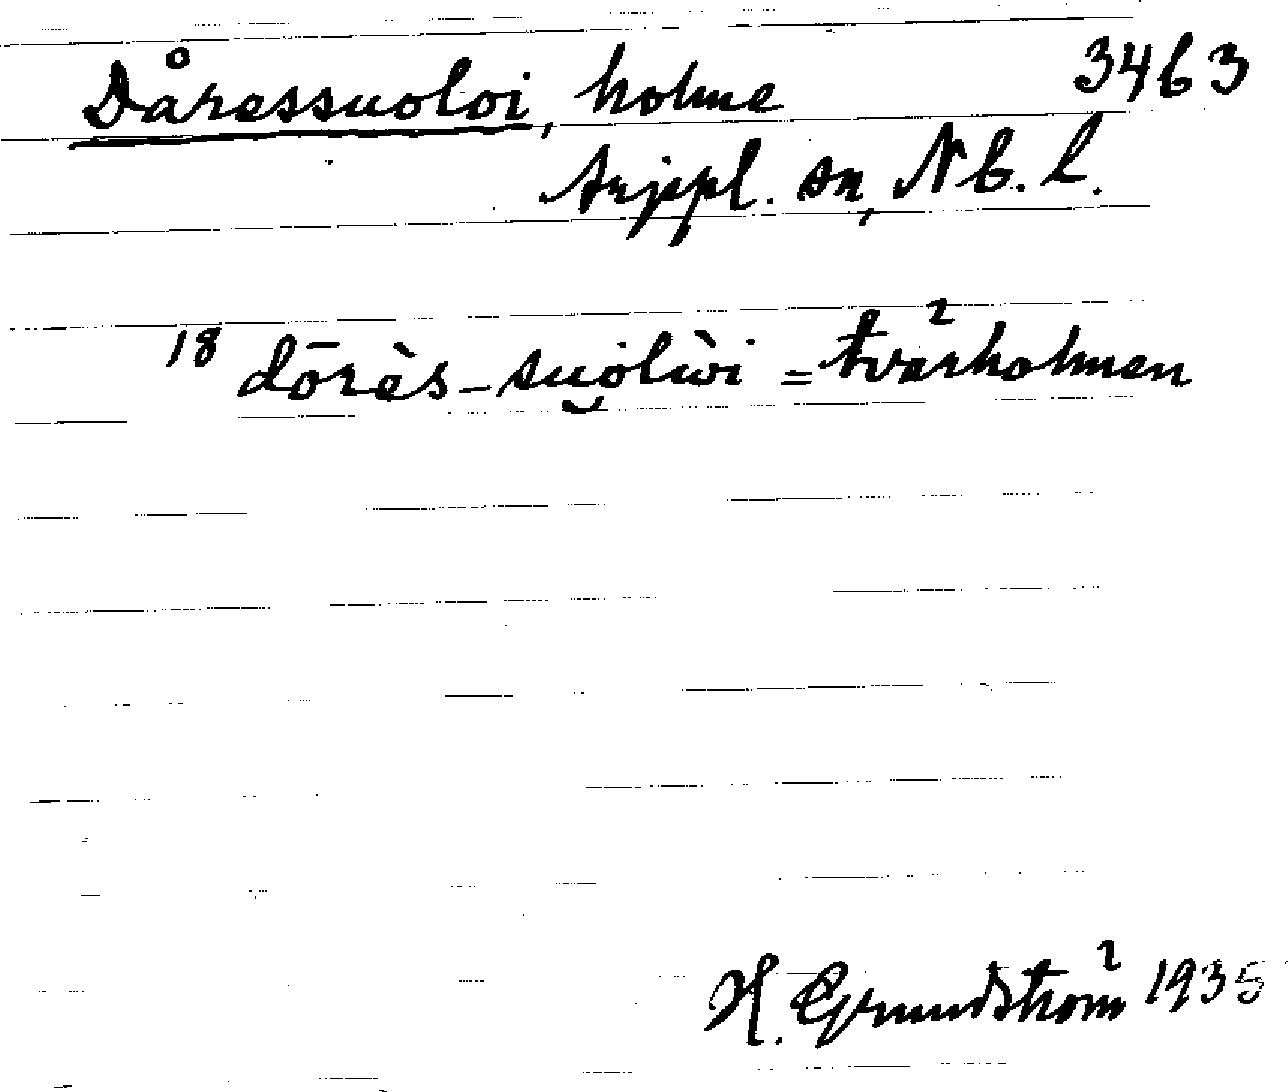 Dåressuoloi, holme 3463
Arjepl. sn, Nb. l.
18 dōrès-suo̯lùi = tvärholmen
H. Grundström 1935